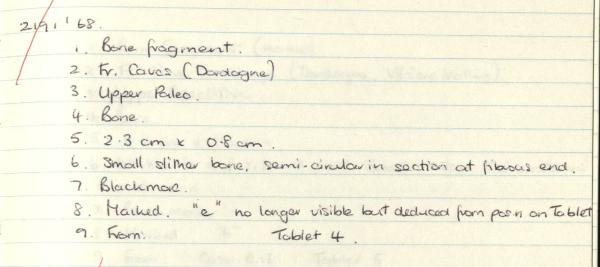 2191'68.
1. Bone fragment.
2. Fr. Caves (Dordogne)
3. Upper Paleo.
4. Bone.
5. 2.3 cm x 0.8 cm.
6. Small slither bone, semi-circular in section at fibrous end.
7. Blackmore.
8. Marked. "e" no longer visible but deduced from posn on Tablet
9. From: Tablet 4.